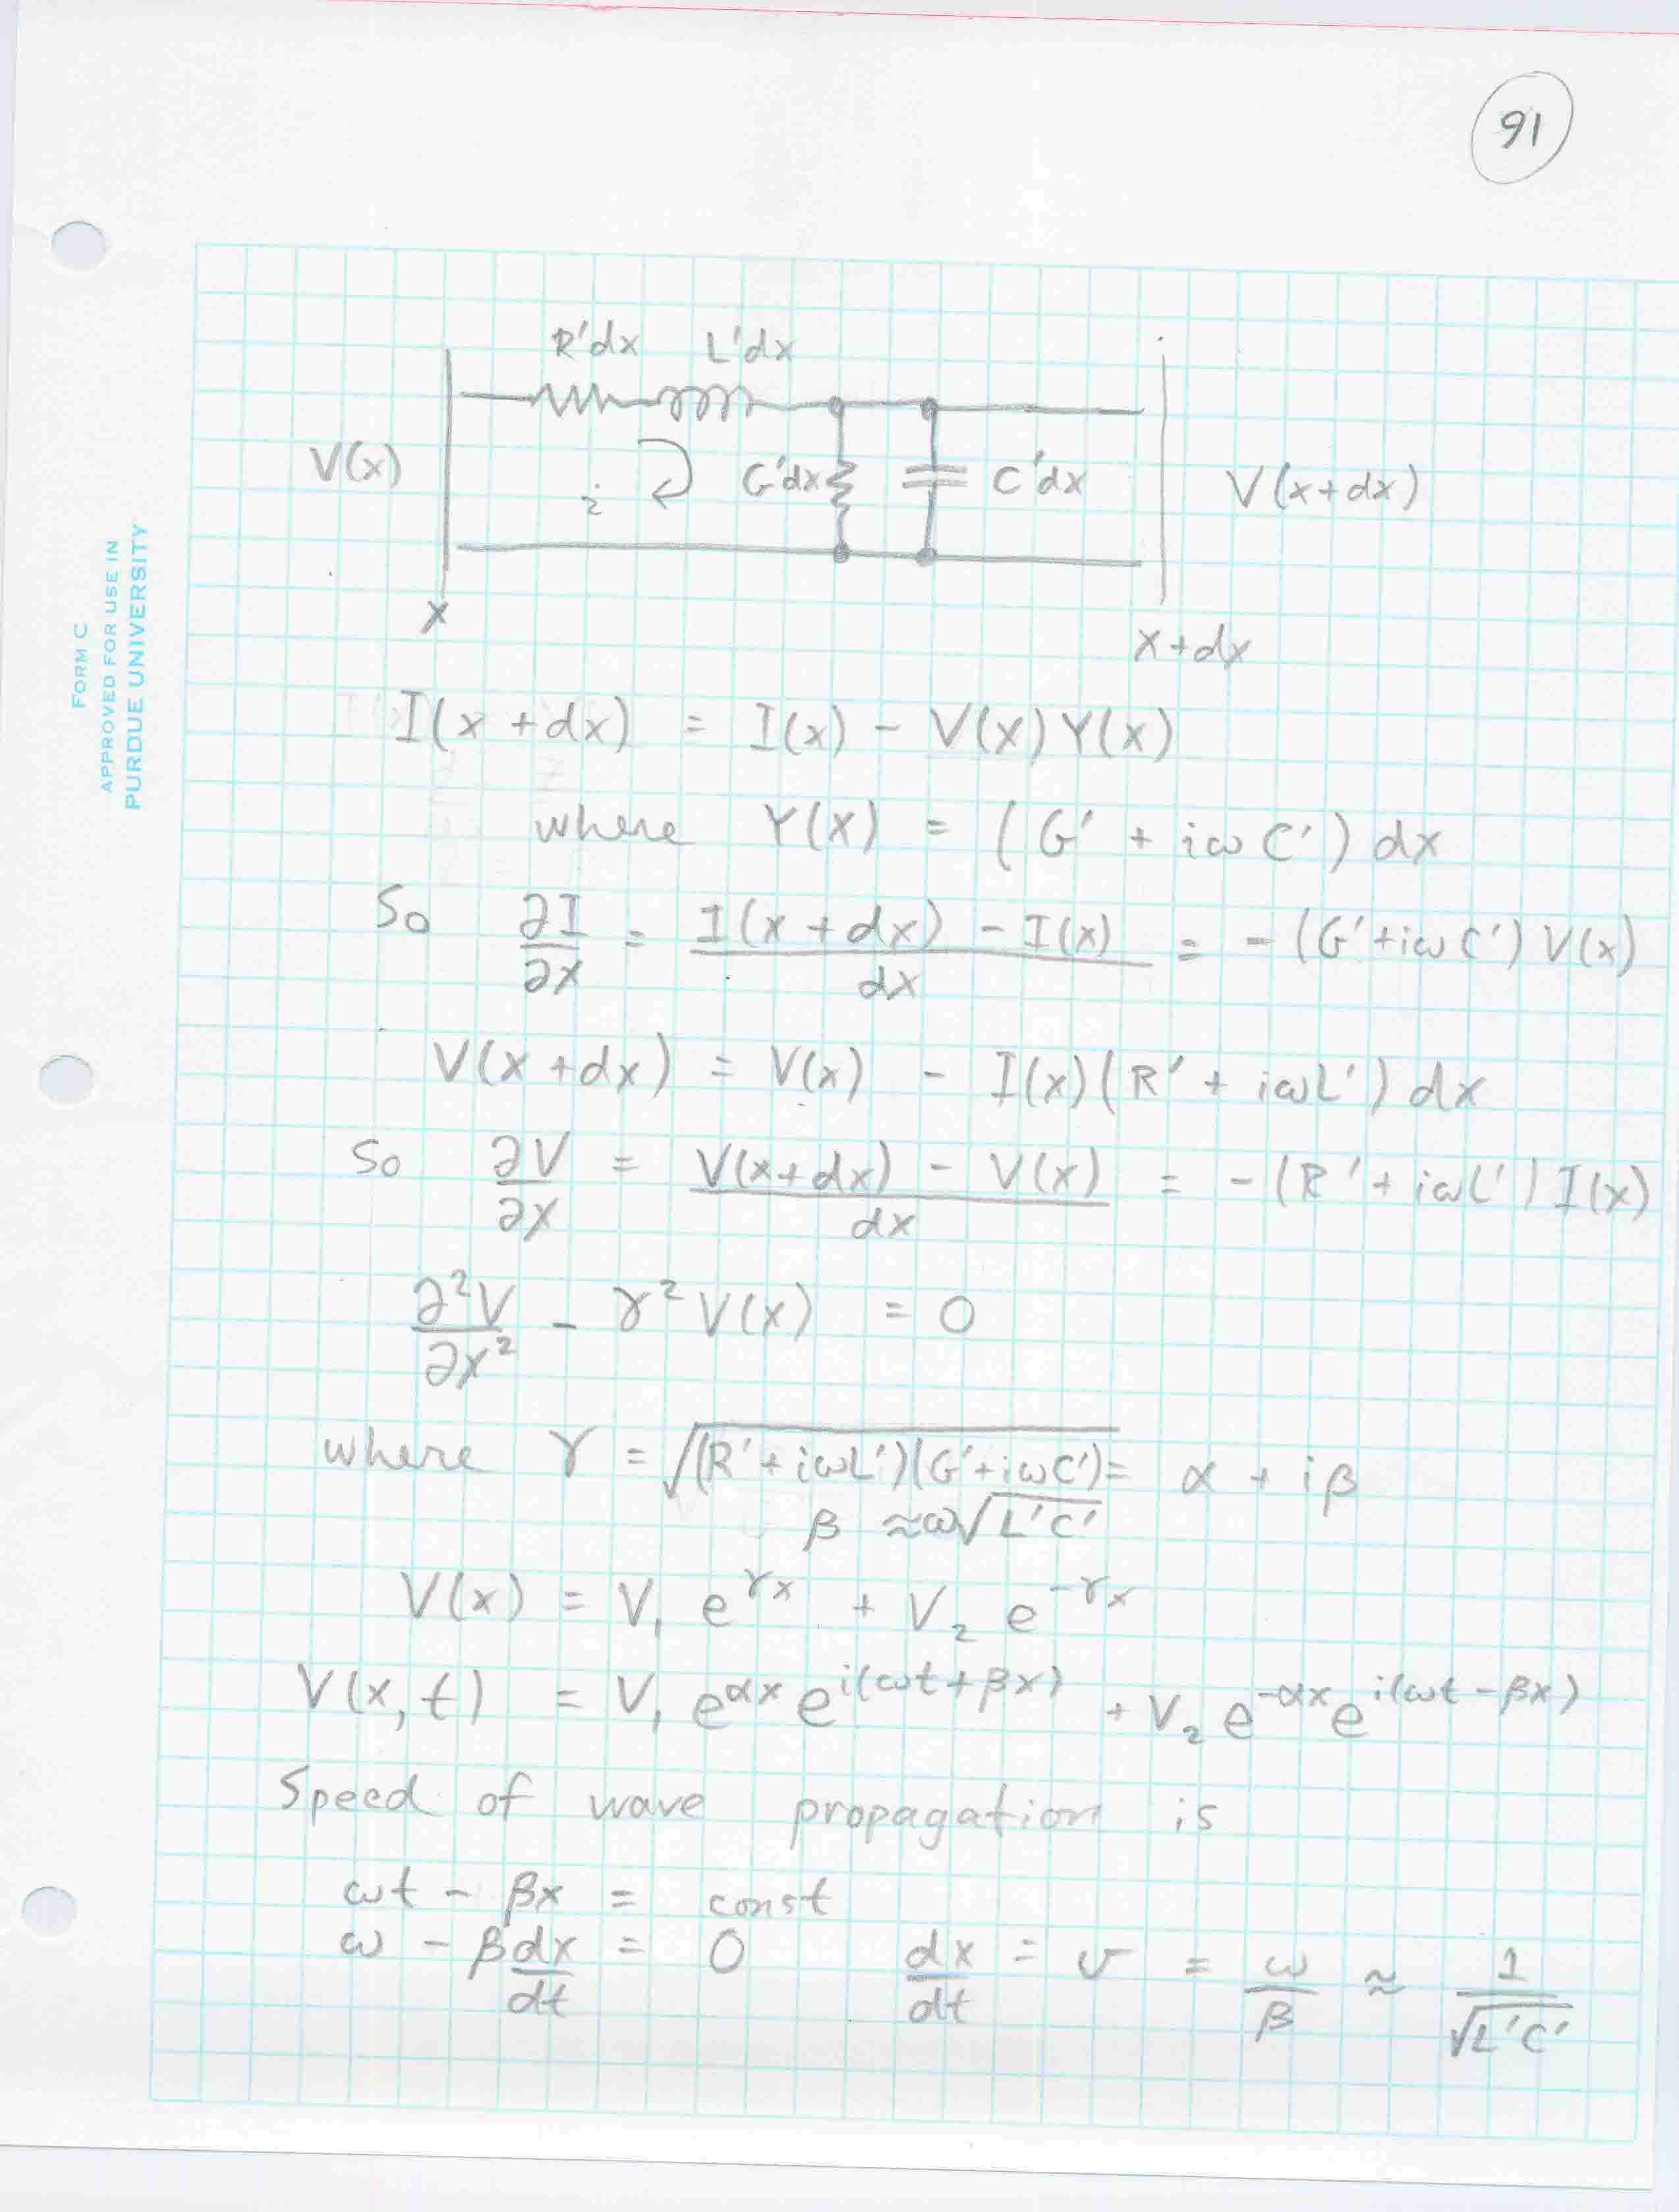 91
R'dx L'dx
V(x) i G'dx C'dx V(x+dx)
x x+dx
FORM C
APPROVED FOR USE IN
PURDUE UNIVERSITY
I(x+dx) = I(x) - V(x)Y(x)
where Y(x) = (G' + iωC')dx
So ∂I/∂x = (I(x+dx) - I(x))/dx = -(G'+iωC')V(x)
V(x+dx) = V(x) - I(x)(R' + iωL')dx
So ∂V/∂x = (V(x+dx) - V(x))/dx = -(R'+iωL')I(x)
∂²V/∂x² - γ²V(x) = 0
where γ = √((R'+iωL')(G'+iωC')) = α + iβ
β ≈ ω√(L'C')
V(x) = V₁ e^(γx) + V₂ e^(-γx)
V(x,t) = V₁ e^(αx) e^(i(ωt+βx)) + V₂ e^(-αx) e^(i(ωt-βx))
Speed of wave propagation is
ωt - βx = const
ω - β dx/dt = 0 dx/dt = v = ω/β ≈ 1/√(L'C')